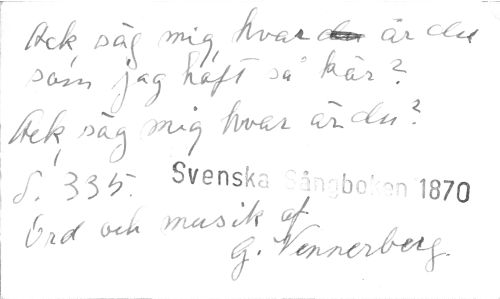 Ack säg mig, hvar du är du
som jag haft så kär?
Ack, säg mig hvar är du?
S. 335. Svenska Sångboken 1870
Ord och musik af
G. Wennerberg.